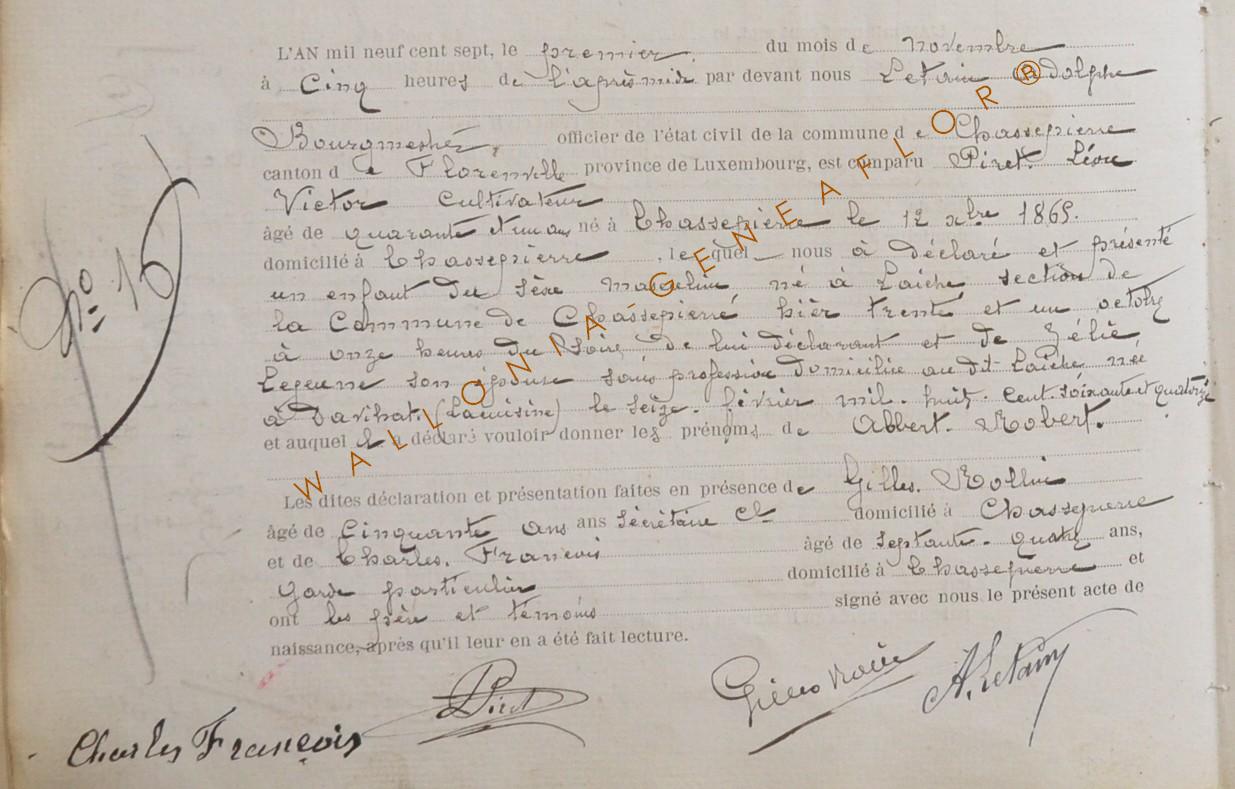 L'AN mil neuf cent sept, le premier. du mois de novembre
à Cinq heures de l'après midi par devant nous Letain Adolphe
Bourgmestre, officier de l'état civil de la commune de Chassepierre
canton de Florenville province de Luxembourg, est comparu Piret. Léon
Victor Cultivateur
âgé de quarante et un ans né à Chassepierre le 12 xbre 1865.
domicilié à Chassepierre, lequel nous à déclaré et présenté
un enfant du sexe masculin né à Laiche section de
la Commune de Chassepierre hier trente et un octobre
à onze heures du soir, de lui déclarant et de Zélie
Lejeune son épouse sans profession domiciliée au dit Laiche, née
à (Lacuisine) le seize. février mil. huit. cent. soixante et quatorze
et auquel il a déclaré vouloir donner les prénoms de Albert. Robert.
Les dites déclaration et présentation faites en présence de Gilles. Rollin
âgé de Cinquante ans ans Secrétaire Cl domicilié à Chassepierre
et de Charles. François âgé de septante. quatre ans,
Garde particulier domicilié à Chassepierre et
ont les père et témoins signé avec nous le présent acte de
naissance, après qu'il leur en a été fait lecture.
No 16
Piret
Gilles Rollin
A. Letain
Charles François
WALLONIA GENEAFLOR ®